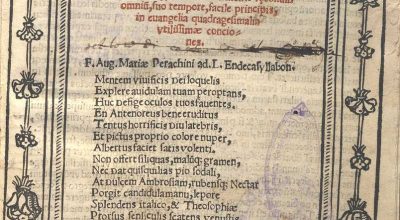 omniũ, suo tempore, facile principis,
in euangelia quadragesimalia
vtilissimæ concio-
nes.
F. Aug. Mariæ Perachini ad. L. Endecasyllabon.
Mentem viuificis dei loquelis
Explere auidulam tuam peroptans,
Huc defige oculos tuos fauentes.
En Antenoreus bene eruditus
Tentus horrificis diu latebris,
Et pictus proprio colore nuper,
Albertus faciet satis volenti.
Non offert siliquas, malúq; gramen,
Nec parquisquilias pio sodali,
At dulcem Ambrosiam, rubensq; Nectar
Porgit candidulamanu, lepore
Splendens italico, & Theosophiæ
Prorsus senticulis scatens venustis